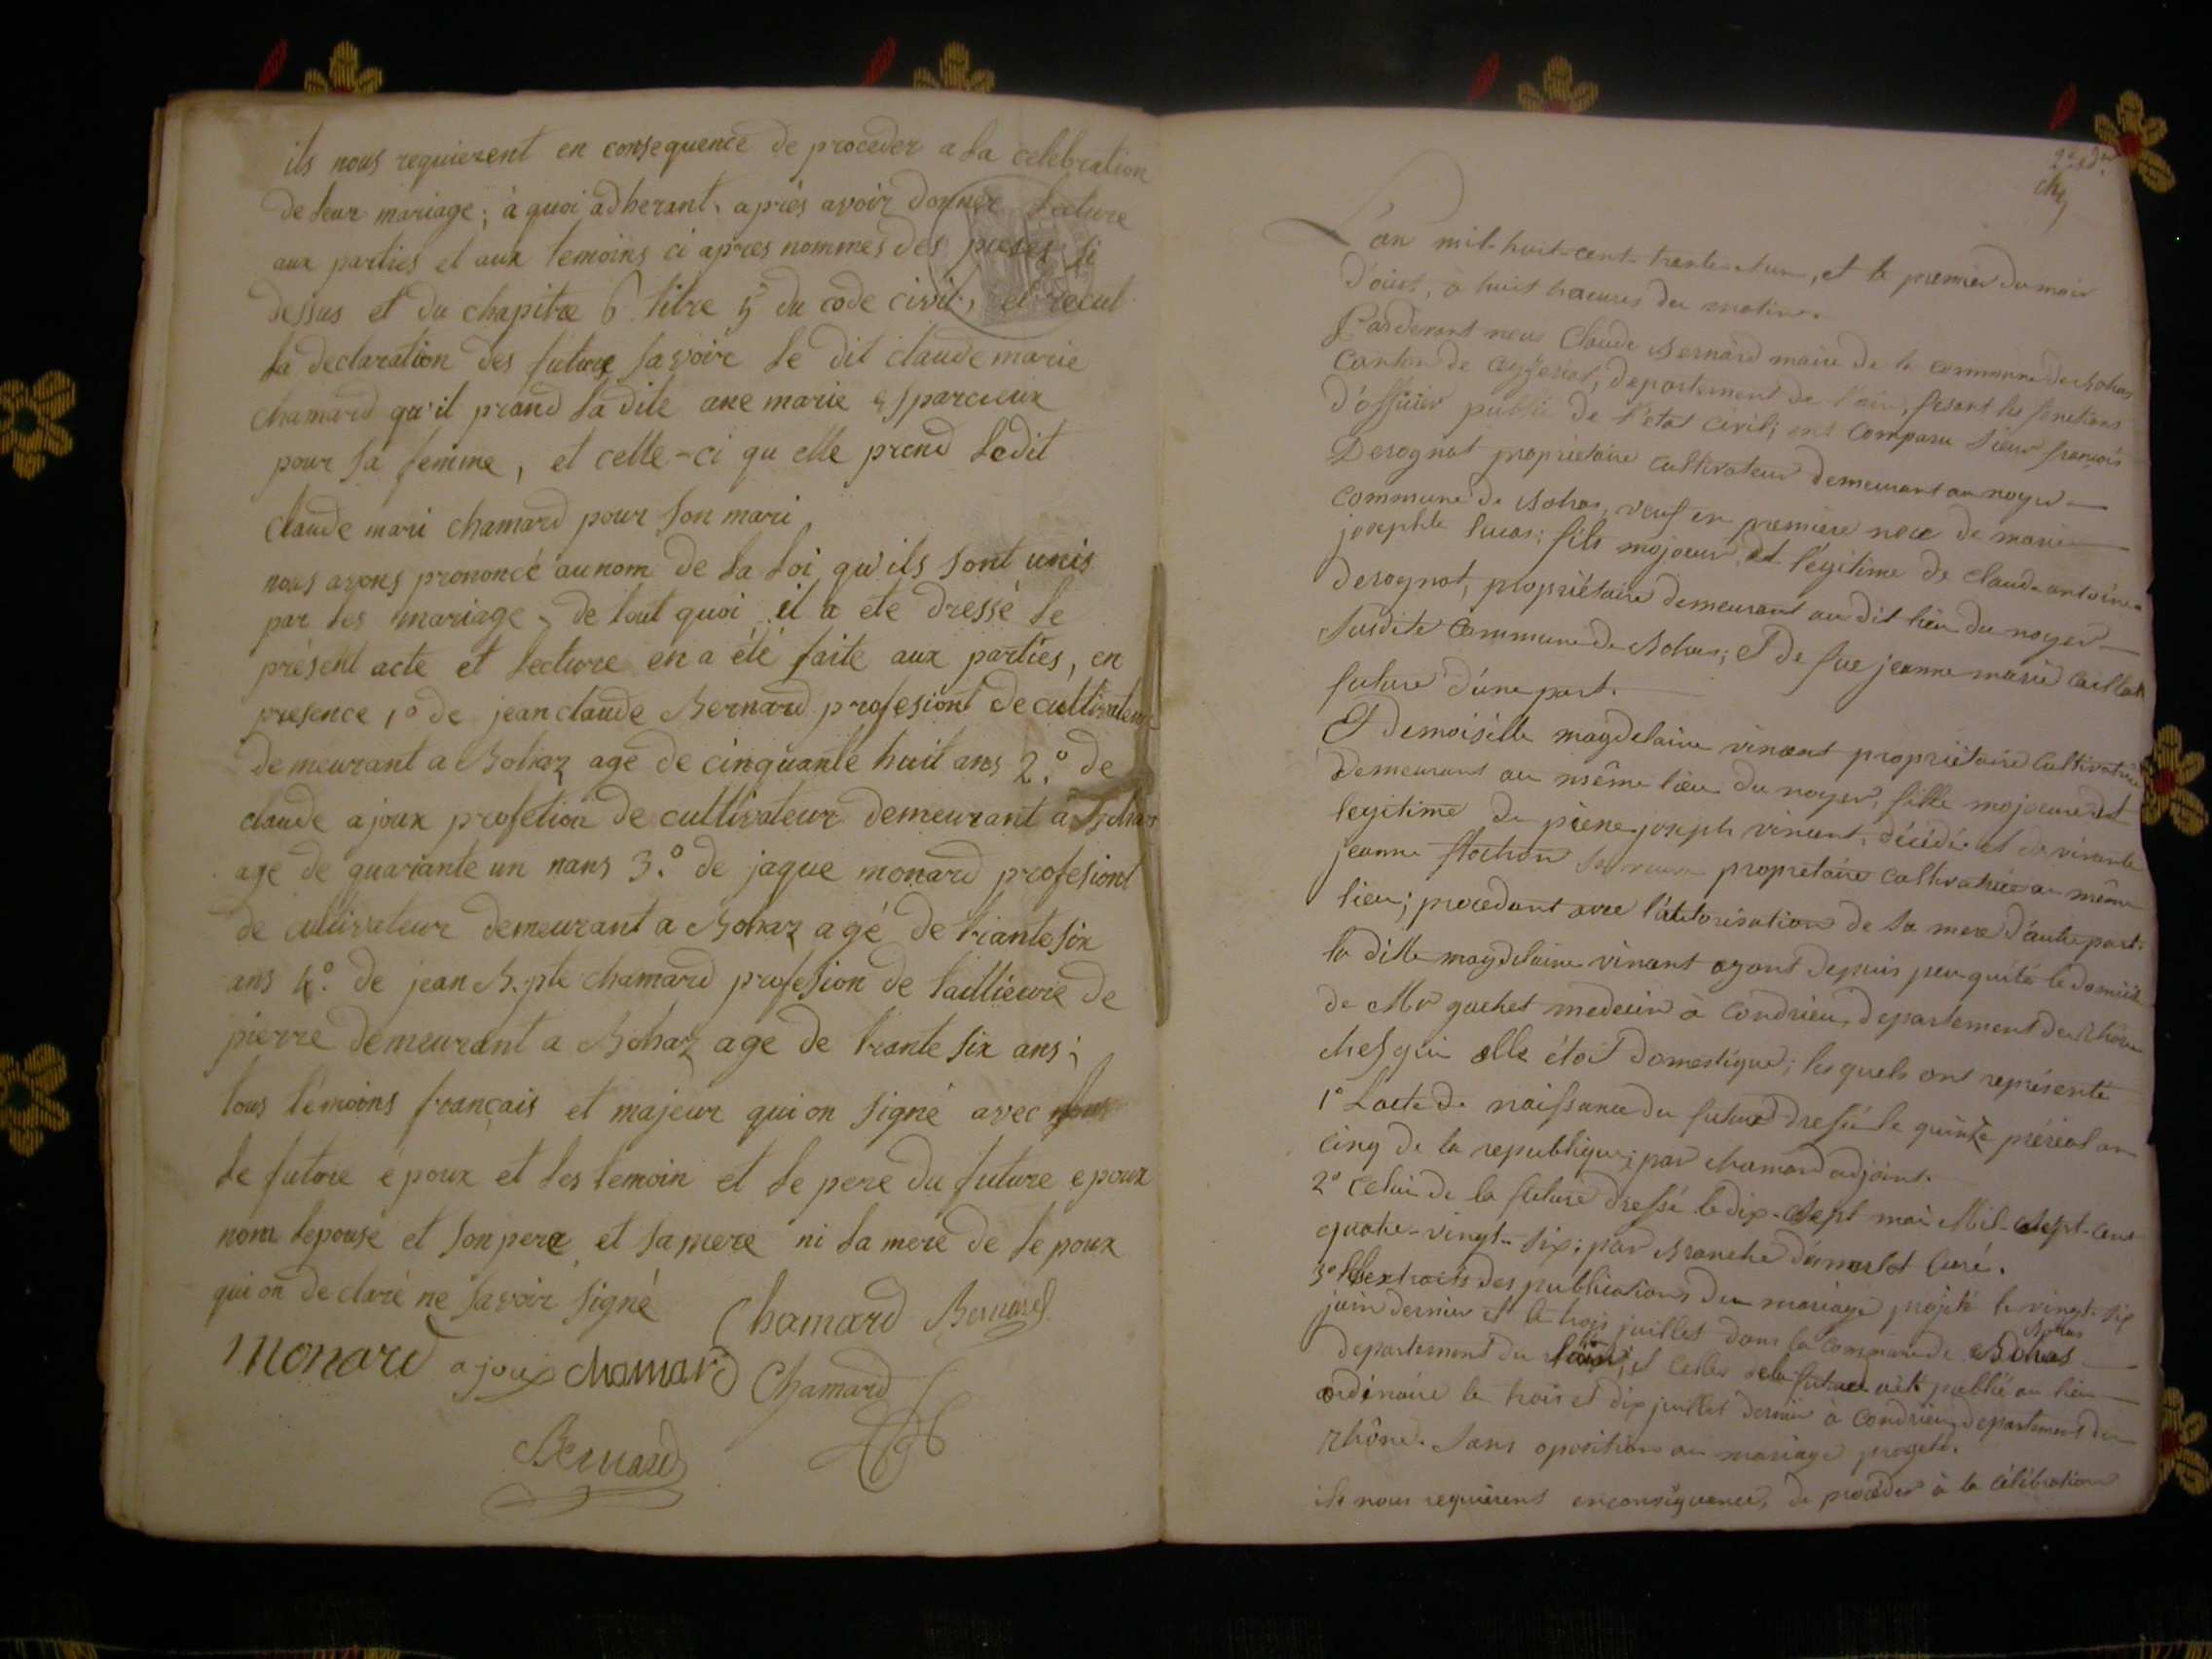 ils nous requierent en consequence de proceder a la celebration
de leur mariage ; à quoi adherant, apriés avoir donner lecture
aux parties et aux temoins ci apres nommes des pieses si
dessus et du chapitre 6 titre 5 du code civil, et recut
la declaration des future savoire le dit claude marie
chamard qu'il prand la dite ane marie esparcieux
pour sa femme, et celle-ci qu elle prend ledit
claude mari chamard pour son mari,
nous avons prononcé au nom de la loi qu'ils sont unis
par les mariage, de tout quoi il a ete dressé le
présent acte et lecture en a été faite aux parties, en
presence 1° de jean claude Bernard profesiont de cultivateur
demeurant a Bohaz age de cinquante huit ans 2.° de
claude ajoux profetion de cultivateur demeurant a Bohas
age de quariante un nans 3.° de jaque monard profesiont
de cultivateur demeurant a Bohaz agé de triante six
ans 4.° de jean B.pte chamard profesion de taillieure de
pierre demeurant a Bohaz age de trante six ans ;
tous témoins français et majeur qui on signé avec nous
le future époux et les temoin et le pere du future epoux
nom lepouse et son pere et sa mere ni la mere de le poux
qui on declaré ne savoir signé
Chamard Bernard
Monard ajoux chamard Chamard
Bernard
L'an mil-huit-cent-trente-et un, et le premier du mois
d'oust, à huit haeures du matin.
Pardevant nous Claude Bernard maire de la commune de Bohas
canton de ceyzeriat, departement de l'ain, fesant les fonctions
d'officier public de l'etat civil ; ont comparu sieur françois
Desognat propriétaire cultivateur demeurant au noyer
commune de Bohas, veuf en premiere noce de marie
josephte lucas ; fils majeur et légitime de claude-antoine
desognat, propriétaire demeurant au dit lieu du noyer
susdite commune de Bohas ; et de fue jeanne marie
future d'une part.
Et demoiselle magdelaine vincent propriétaire cultivatrice
demeurant au même lieu du noyer, fille majeure et
legitime de pierre-joseph vincent, décédé et de vivante
jeanne flochon sa veuve propretaire cultivatrice au même
lieu ; procedant avec l'autorisation de sa mere d'autre part.
la dille magdelaine vincent ayant depuis peu quité le domicile
de Mr gachet medecin à condrieu, departement du Rhône
ches qui elle étoit domestique ; lesquels ont représenté
1° L'acte de naissance du future dressé le quinze préréal an
cinq de la republique ; par chamard adjoint.
2° celui de la future dressé le dix-sept mai Mil-sept-cent
quatre-vingt-six ; par Branche curé.
3° extraits des publications du mariage projeté le vingt-six
juin dernier et le trois juillet dans la commune de Bohas
Bohas
departement de l'ain, et celles de la future publié au lieu
ordinaire le trois et dix juillet dernier à condrieu departement du
Rhône. sans oposition au mariage progeté.
ils nous requièrent enconséquence, de procéder à la célébration